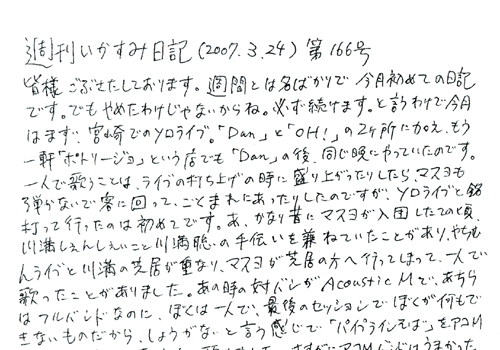 週刊いかすみ日記 (2007.3.24) 第166号
皆様ごぶさたしております。週間とは名ばかりで今月初めての日記
です。でもやめたわけじゃないからね。必ず続けます。と言うわけで今月
はまず、宮崎でのYOライブ。「Dan」と「OH!」の2ヶ所に加え、もう
一軒「ポトリージョ」という店でも「Dan」の後、同じ晩にやっていたのです。
一人で歌うことは、ライブの打ち上げの時に盛り上がったりしたら、マスヨも
弾かないで客に回って、ごくまれにあったりしたのですが、YOライブと銘
打って行ったのは初めてです。あ、かなり昔にマスヨが入団したての頃、
川満しぇんしぇいこと川満聡の手伝いを兼ねていたことがあり、やちむ
んライブと川満の芝居が重なり、マスヨが芝居の方へ行ってしまって、一人で
歌ったことがありました。あの時の対バンがAcoustic Mで、あちら
はフルバンドなのに、ぼくは一人で、最後のセッションでぼくが何もで
きないものだから、しょうがないと言う感じで「パイプラインそば」をアコM